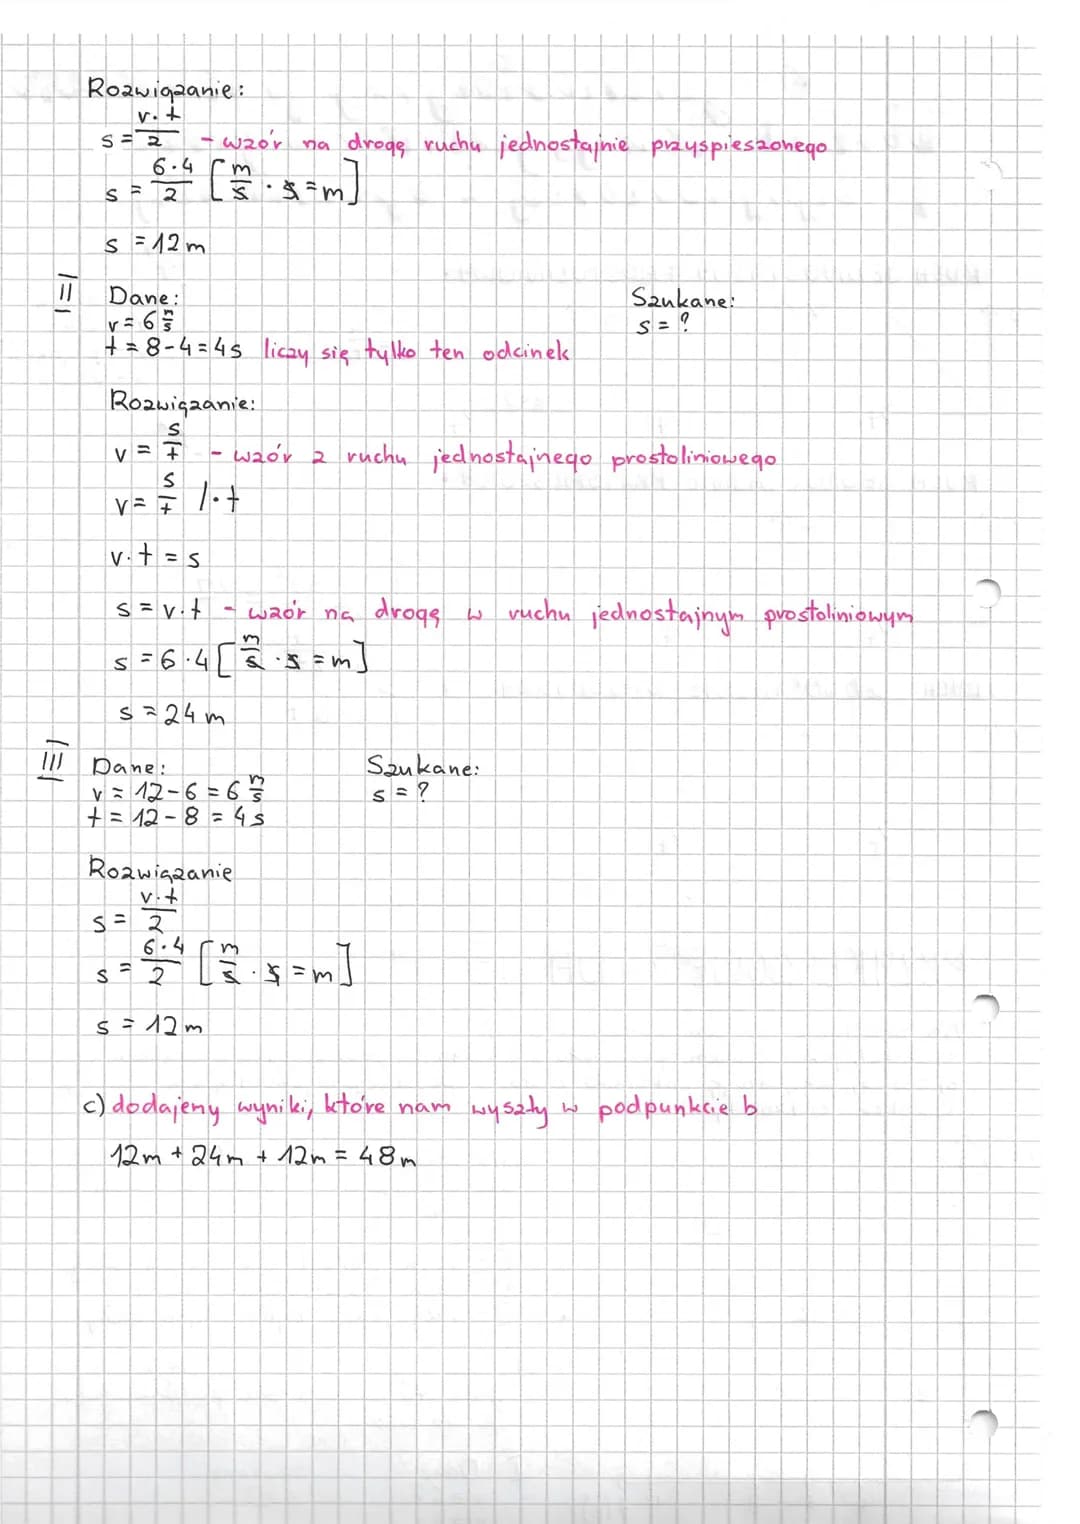 Rozwiązanie:
s = v·t/2 - wzór na drogę ruchu jednostajnie przyspieszonego
s = 6·4/2 [m/s · s = m]
s = 12 m
II Dane: Szukane:
v = 6 m/s s = ?
t = 8-4 = 4s liczy się tylko ten odcinek
Rozwiązanie:
v = s/t - wzór z ruchu jednostajnego prostoliniowego
v = s/t /·t
v·t = s
s = v·t - wzór na drogę w ruchu jednostajnym prostoliniowym
s = 6·4 [m/s · s = m]
s = 24 m
III Dane: Szukane:
v = 12-6 = 6 m/s s = ?
t = 12-8 = 4s
Rozwiązanie
s = v·t/2
s = 6·4/2 [m/s · s = m]
s = 12m
c) dodajemy wyniki, które nam wyszły w podpunkcie b
12m + 24m + 12m = 48m